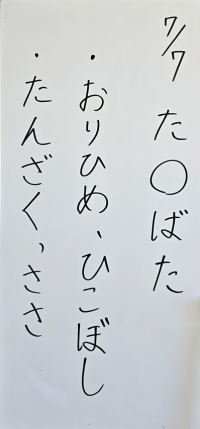 7/7 た○ばた
・おりひめ、ひこぼし
・たんざく、ささ